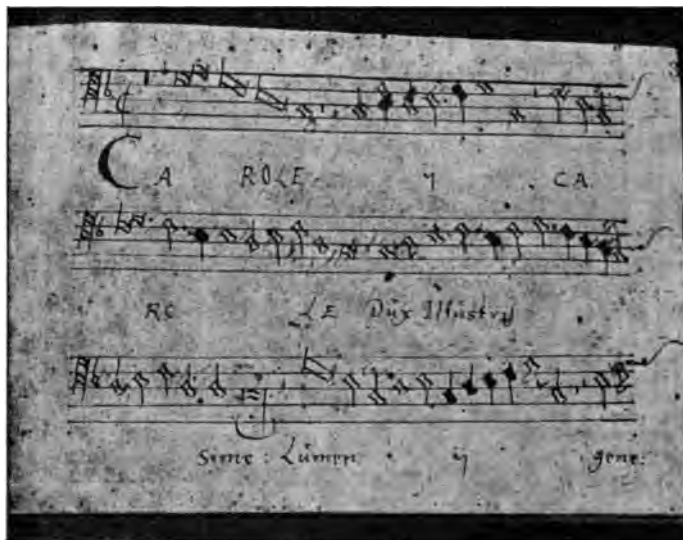 CA ROLE ij CA
RO LE Dux Illustris
sime : Lumen ij gene: